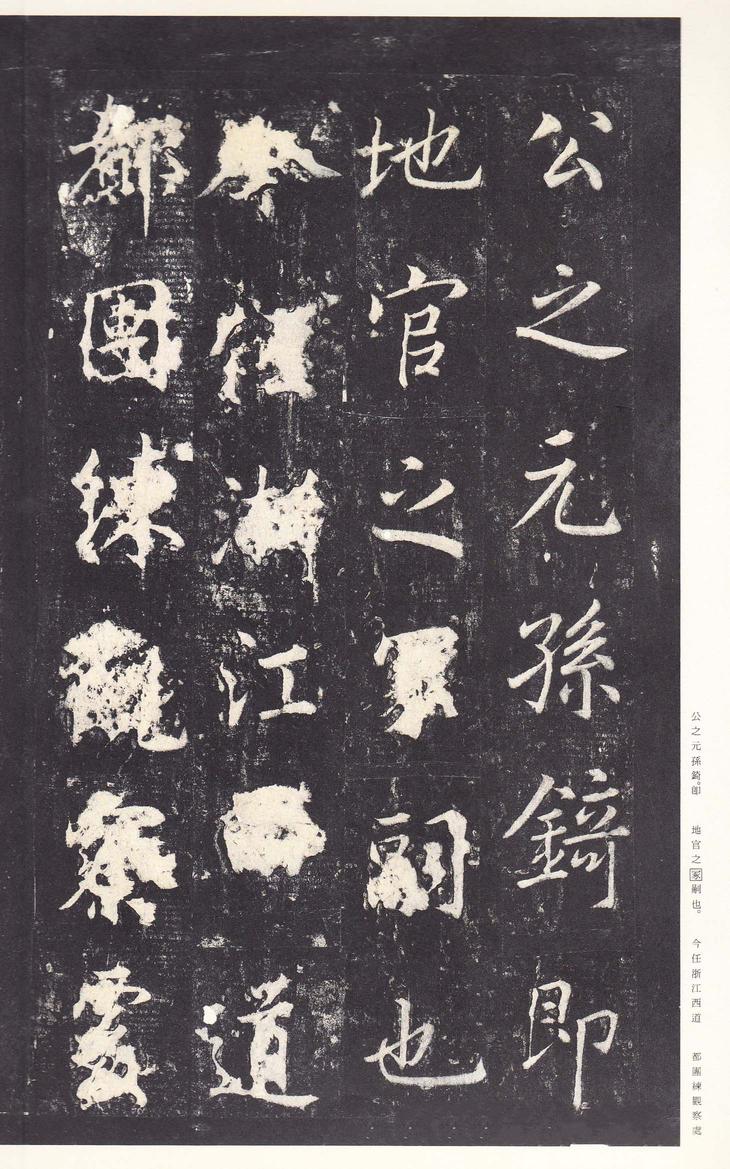 公之元孫錡即
地官之冢嗣也
今任浙江西道
都團練觀察處
公之元孫錡。即 地官之冢嗣也。 今任浙江西道 都團練觀察處